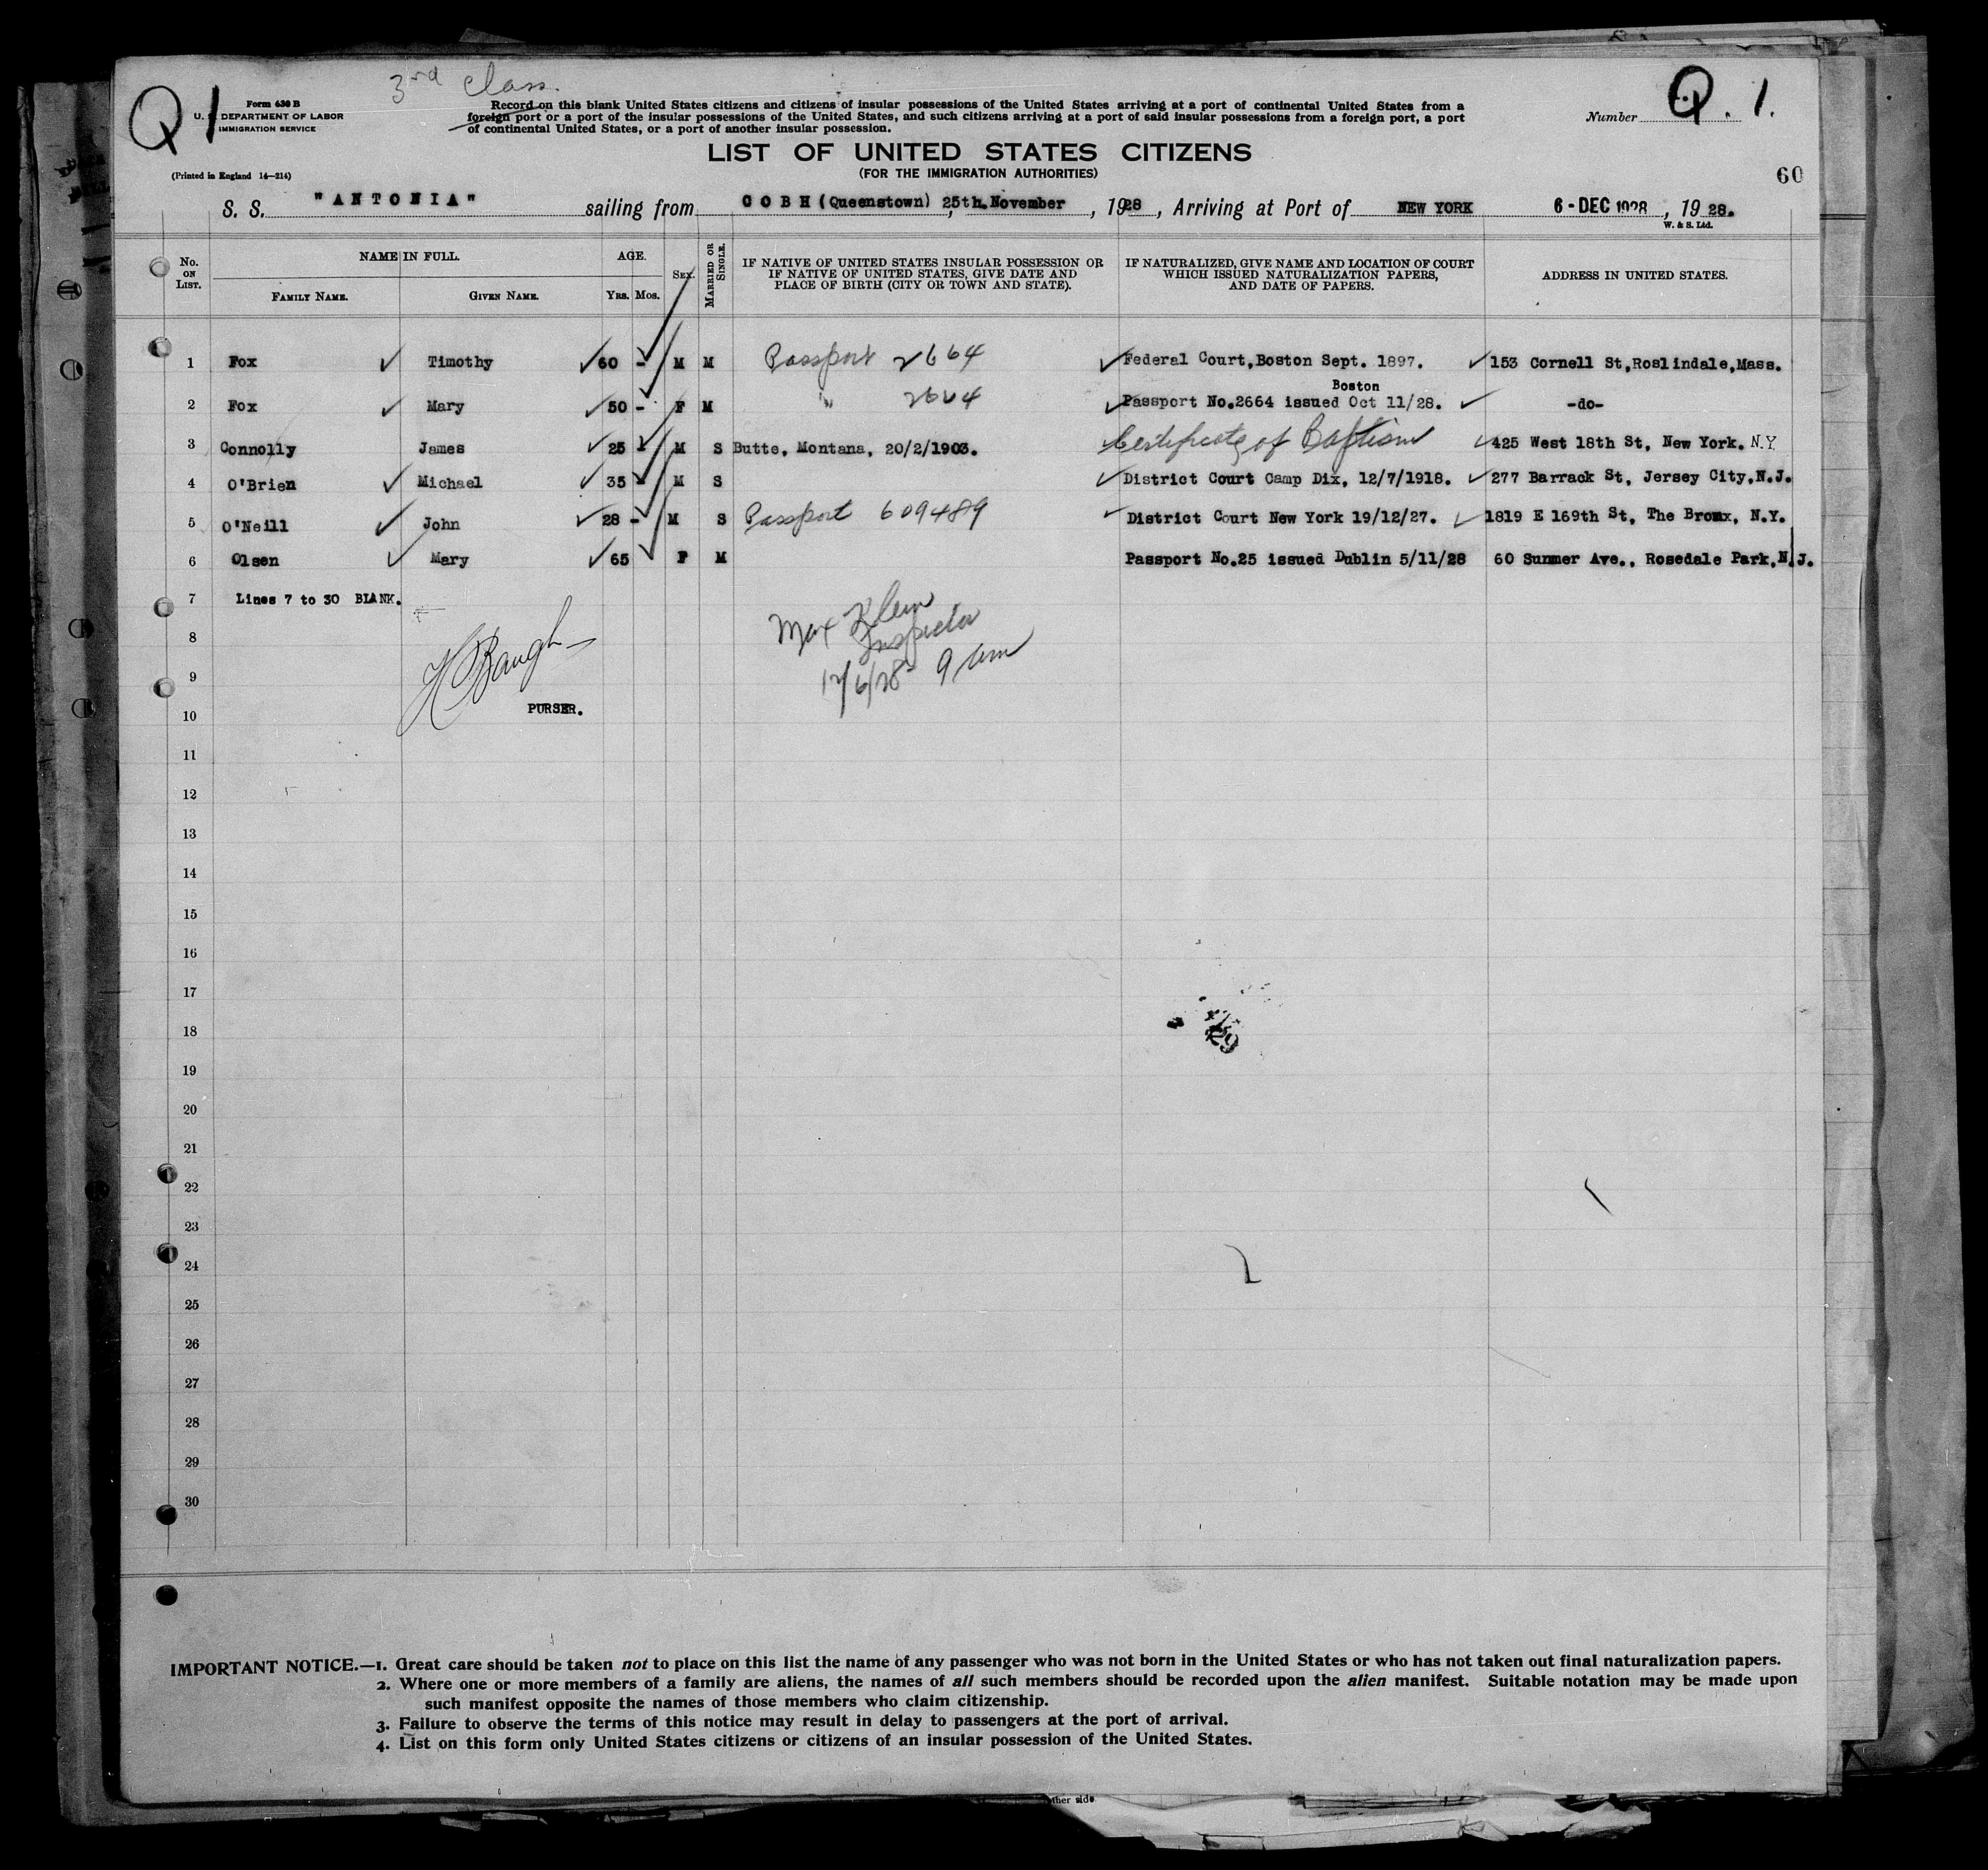 Q 1
3rd class.
Q. 1.
Form 630 B
U. S. DEPARTMENT OF LABOR
IMMIGRATION SERVICE
Record on this blank United States citizens and citizens of insular possessions of the United States arriving at a port of continental United States from a
foreign port or a port of the insular possessions of the United States, and such citizens arriving at a port of said insular possessions from a foreign port, a port
of continental United States, or a port of another insular possession.
Number
LIST OF UNITED STATES CITIZENS
(FOR THE IMMIGRATION AUTHORITIES)
(Printed in England 14—214)
60
S. S. "ANTONIA" sailing from COBH (Queenstown) 25th. November, 1928, Arriving at Port of NEW YORK 6 - DEC 1928, 1928.
W. & S. Ltd.
No. ON LIST.
NAME IN FULL.
FAMILY NAME.
GIVEN NAME.
AGE.
YRS. MOS.
SEX.
MARRIED OR SINGLE.
IF NATIVE OF UNITED STATES INSULAR POSSESSION OR
IF NATIVE OF UNITED STATES, GIVE DATE AND
PLACE OF BIRTH (CITY OR TOWN AND STATE).
IF NATURALIZED, GIVE NAME AND LOCATION OF COURT
WHICH ISSUED NATURALIZATION PAPERS,
AND DATE OF PAPERS.
ADDRESS IN UNITED STATES.
1 Fox Timothy 60 - M M Passport 2664 Federal Court, Boston Sept. 1897. 153 Cornell St, Roslindale, Mass.
Boston
2 Fox Mary 50 - F M " 2664 Passport No.2664 issued Oct 11/28. -do-
3 Connolly James 25 - M S Butte, Montana, 20/2/1903. Certificate of Baptism 425 West 18th St, New York. N.Y
4 O'Brien Michael 35 M S District Court Camp Dix, 12/7/1918. 277 Barrack St, Jersey City, N.J.
5 O'Neill John 28 - M S Passport 609489 District Court New York 19/12/27. 1819 E 169th St, The Bronx, N.Y.
6 Olsen Mary 65 F M Passport No.25 issued Dublin 5/11/28 60 Sunmer Ave., Rosedale Park, N.J.
7 Lines 7 to 30 BLANK.
8
H Baugh
Max Klein
Inspector
9
12/6/28 9 am
10 PURSER.
11
12
13
14
15
16
17
18
19
20
21
22
23
24
25
26
27
28
29
30
IMPORTANT NOTICE.—1. Great care should be taken not to place on this list the name of any passenger who was not born in the United States or who has not taken out final naturalization papers.
2. Where one or more members of a family are aliens, the names of all such members should be recorded upon the alien manifest. Suitable notation may be made upon
such manifest opposite the names of those members who claim citizenship.
3. Failure to observe the terms of this notice may result in delay to passengers at the port of arrival.
4. List on this form only United States citizens or citizens of an insular possession of the United States.
side